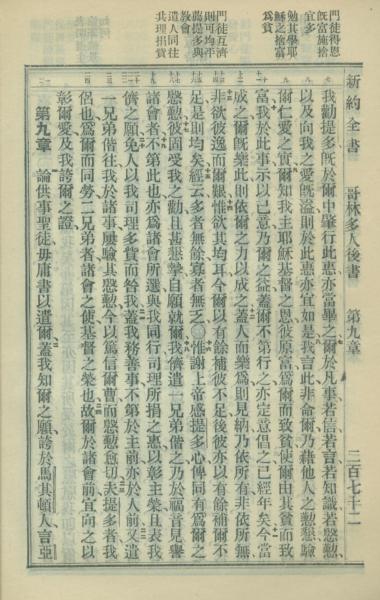 門徒得恩
既富施捨
宜多
勉其學耶
穌之捨富
爲貧
門徒互濟
則可均平
薦提多與
教會
遣人同往
共理捐貲
新約全書 哥林多人後書 第九章 二百七十二
我勸提多既於爾中肇行此惠亦當畢之爾於凡事若信若言若知識若慇懃
以及向我之愛既溢則於此惠亦宜如是我言此非命爾乃藉他人之懃懇驗
爾仁愛之實爾知我主耶穌基督之恩彼原富爲爾而致貧使爾由其貧而致
富我於此事示以己意乃爾之益蓋爾不第行之亦定意倡之已經年矣今當
成之爾既樂此則依爾之力以成之蓋人而樂爲則見納乃依所有非依所無
非欲彼逸而爾艱惟欲其均耳今爾以有餘補彼不足後彼亦以有餘補爾不
足是則均矣經云多者無餘寡者無乏〇惟謝上帝感提多心俾同有爲爾之
慇懃彼固受我之勸且甚懇摯自願就爾我儕遣一兄弟偕之乃於福音見譽
諸會者不第此也亦爲諸會所選與我同行司理所捐之惠以彰主榮且表我
儕之願免人以我司理多貲而咎我蓋我務善事不第於主前亦於人前又遣
一兄弟偕往我於諸事屢驗其慇懃今以篤信爾曹而慇懃愈切夫提多者我
侶也爲爾而同勞二兄弟者諸會之使基督之榮也故爾於諸會前宜向之以
彰爾愛及我誇爾之證
第九章 論供事聖徒毋庸書以遺爾蓋我知爾之願誇於馬其頓人言亞